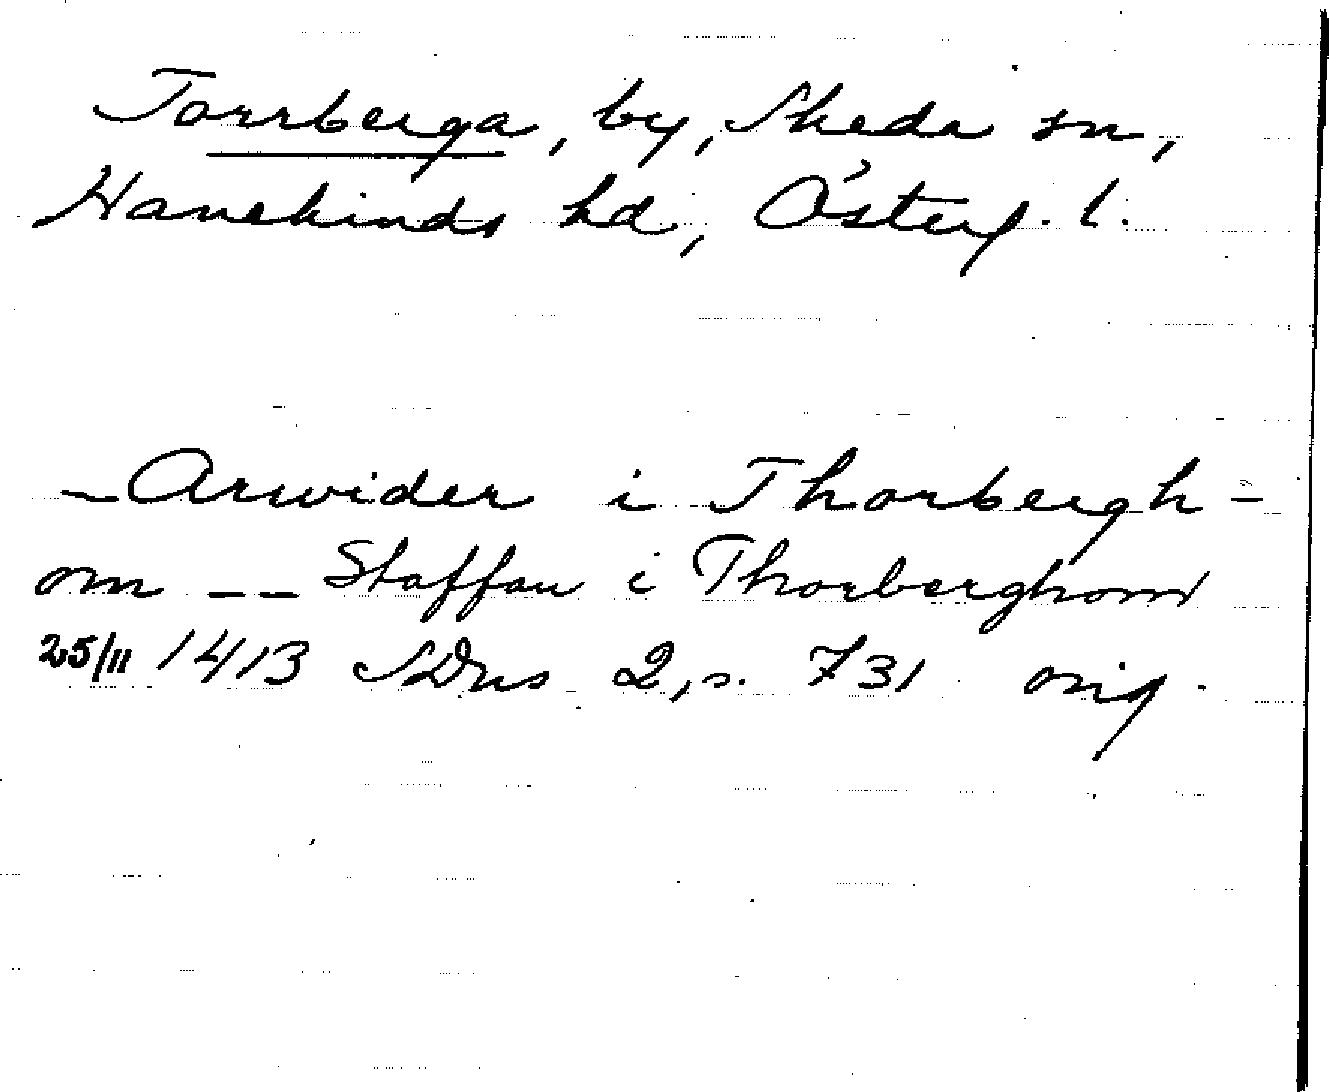 Torrberga, by, Skeda sn,
Hanekinds hd, Österg. l.
- Arwider i Thorbergh=
om -- Staffan i Thorberghom
25/11 1413 SDns 2, s. 731 orig.